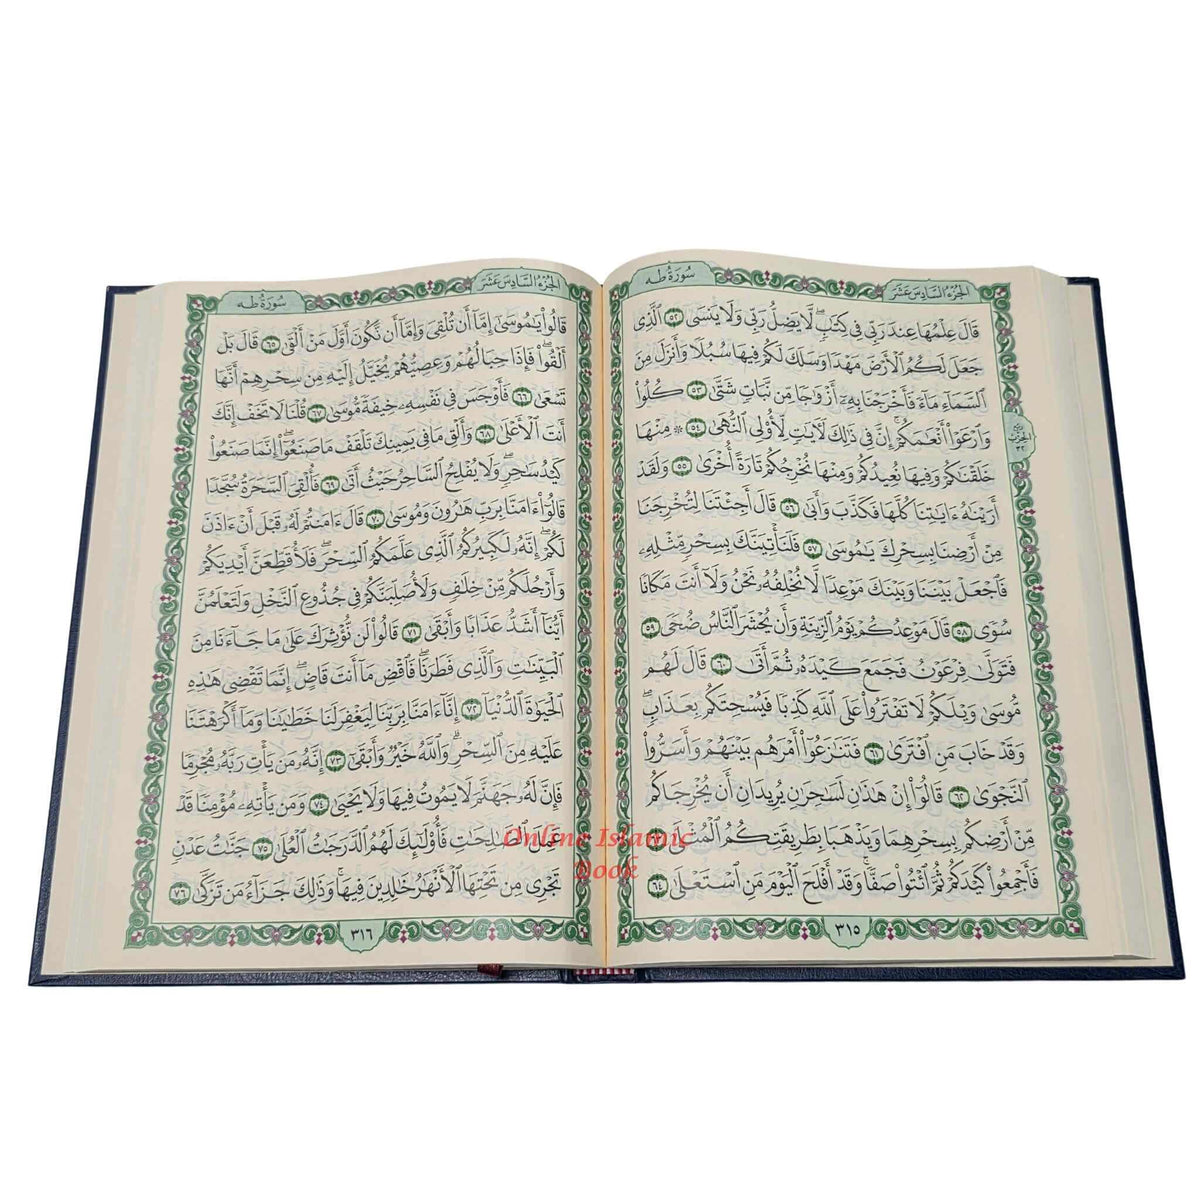 سُورَةُ طه
الجُزْءُ السَّادِسَ عَشَرَ
قَالَ عِلْمُهَا عِندَ رَبِّي فِي كِتَٰبٍۖ لَّا يَضِلُّ رَبِّي وَلَا يَنسَى ٥٢ ٱلَّذِي
جَعَلَ لَكُمُ ٱلْأَرْضَ مَهْدًا وَسَلَكَ لَكُمْ فِيهَا سُبُلًا وَأَنزَلَ مِنَ
ٱلسَّمَآءِ مَآءً فَأَخْرَجْنَا بِهِۦٓ أَزْوَٰجًا مِّن نَّبَاتٍ شَتَّىٰ ٥٣ كُلُوا۟
وَٱرْعَوْا۟ أَنْعَٰمَكُمْۗ إِنَّ فِي ذَٰلِكَ لَءَايَٰتٍ لِّأُو۟لِي ٱلنُّهَىٰ ٥٤ ۞ مِنْهَا
خَلَقْنَٰكُمْ وَفِيهَا نُعِيدُكُمْ وَمِنْهَا نُخْرِجُكُمْ تَارَةً أُخْرَىٰ ٥٥ وَلَقَدْ
أَرَيْنَٰهُ ءَايَٰتِنَا كُلَّهَا فَكَذَّبَ وَأَبَىٰ ٥٦ قَالَ أَجِئْتَنَا لِتُخْرِجَنَا
مِنْ أَرْضِنَا بِسِحْرِكَ يَٰمُوسَىٰ ٥٧ فَلَنَأْتِيَنَّكَ بِسِحْرٍ مِّثْلِهِۦ
فَٱجْعَلْ بَيْنَنَا وَبَيْنَكَ مَوْعِدًا لَّا نُخْلِفُهُۥ نَحْنُ وَلَآ أَنتَ مَكَانًا
سُوًى ٥٨ قَالَ مَوْعِدُكُمْ يَوْمُ ٱلزِّينَةِ وَأَن يُحْشَرَ ٱلنَّاسُ ضُحًى ٥٩
فَتَوَلَّىٰ فِرْعَوْنُ فَجَمَعَ كَيْدَهُۥ ثُمَّ أَتَىٰ ٦٠ قَالَ لَهُم
مُّوسَىٰ وَيْلَكُمْ لَا تَفْتَرُوا۟ عَلَى ٱللَّهِ كَذِبًا فَيُسْحِتَكُم بِعَذَابٍۖ
وَقَدْ خَابَ مَنِ ٱفْتَرَىٰ ٦١ فَتَنَٰزَعُوٓا۟ أَمْرَهُم بَيْنَهُمْ وَأَسَرُّوا۟
ٱلنَّجْوَىٰ ٦٢ قَالُوٓا۟ إِنْ هَٰذَٰنِ لَسَٰحِرَٰنِ يُرِيدَانِ أَن يُخْرِجَاكُم
مِّنْ أَرْضِكُم بِسِحْرِهِمَا وَيَذْهَبَا بِطَرِيقَتِكُمُ ٱلْمُثْلَىٰ ٦٣
فَأَجْمِعُوا۟ كَيْدَكُمْ ثُمَّ ٱئْتُوا۟ صَفًّاۚ وَقَدْ أَفْلَحَ ٱلْيَوْمَ مَنِ ٱسْتَعْلَىٰ ٦٤
٣١٥
الجُزْءُ السَّادِسَ عَشَرَ
سُورَةُ طه
قَالُوا۟ يَٰمُوسَىٰٓ إِمَّآ أَن تُلْقِيَ وَإِمَّآ أَن نَّكُونَ أَوَّلَ مَنْ أَلْقَىٰ ٦٥ قَالَ بَلْ
أَلْقُوا۟ۖ فَإِذَا حِبَالُهُمْ وَعِصِيُّهُمْ يُخَيَّلُ إِلَيْهِ مِن سِحْرِهِمْ أَنَّهَا
تَسْعَىٰ ٦٦ فَأَوْجَسَ فِي نَفْسِهِۦ خِيفَةً مُّوسَىٰ ٦٧ قُلْنَا لَا تَخَفْ إِنَّكَ
أَنتَ ٱلْأَعْلَىٰ ٦٨ وَأَلْقِ مَا فِي يَمِينِكَ تَلْقَفْ مَا صَنَعُوٓا۟ۖ إِنَّمَا صَنَعُوا۟
كَيْدُ سَٰحِرٍۖ وَلَا يُفْلِحُ ٱلسَّاحِرُ حَيْثُ أَتَىٰ ٦٩ فَأُلْقِيَ ٱلسَّحَرَةُ سُجَّدًا
قَالُوٓا۟ ءَامَنَّا بِرَبِّ هَٰرُونَ وَمُوسَىٰ ٧٠ قَالَ ءَامَنتُمْ لَهُۥ قَبْلَ أَنْ ءَاذَنَ
لَكُمْۖ إِنَّهُۥ لَكَبِيرُكُمُ ٱلَّذِي عَلَّمَكُمُ ٱلسِّحْرَۖ فَلَأُقَطِّعَنَّ أَيْدِيَكُمْ
وَأَرْجُلَكُم مِّنْ خِلَٰفٍ وَلَأُصَلِّبَنَّكُمْ فِي جُذُوعِ ٱلنَّخْلِ وَلَتَعْلَمُنَّ
أَيُّنَآ أَشَدُّ عَذَابًا وَأَبْقَىٰ ٧١ قَالُوا۟ لَن نُّؤْثِرَكَ عَلَىٰ مَا جَآءَنَا مِنَ
ٱلْبَيِّنَٰتِ وَٱلَّذِي فَطَرَنَاۖ فَٱقْضِ مَآ أَنتَ قَاضٍۖ إِنَّمَا تَقْضِي هَٰذِهِ
ٱلْحَيَوٰةَ ٱلدُّنْيَآ ٧٢ إِنَّآ ءَامَنَّا بِرَبِّنَا لِيَغْفِرَ لَنَا خَطَٰيَٰنَا وَمَآ أَكْرَهْتَنَا
عَلَيْهِ مِنَ ٱلسِّحْرِۗ وَٱللَّهُ خَيْرٌ وَأَبْقَىٰٓ ٧٣ إِنَّهُۥ مَن يَأْتِ رَبَّهُۥ مُجْرِمًا
فَإِنَّ لَهُۥ جَهَنَّمَ لَا يَمُوتُ فِيهَا وَلَا يَحْيَىٰ ٧٤ وَمَن يَأْتِهِۦ مُؤْمِنًا قَدْ
عَمِلَ ٱلصَّٰلِحَٰتِ فَأُو۟لَٰٓئِكَ لَهُمُ ٱلدَّرَجَٰتُ ٱلْعُلَىٰ ٧٥ جَنَّٰتُ عَدْنٍ
تَجْرِي مِن تَحْتِهَا ٱلْأَنْهَٰرُ خَٰلِدِينَ فِيهَاۚ وَذَٰلِكَ جَزَآءُ مَن تَزَكَّىٰ ٧٦
٣١٦
Online Islamic
Book